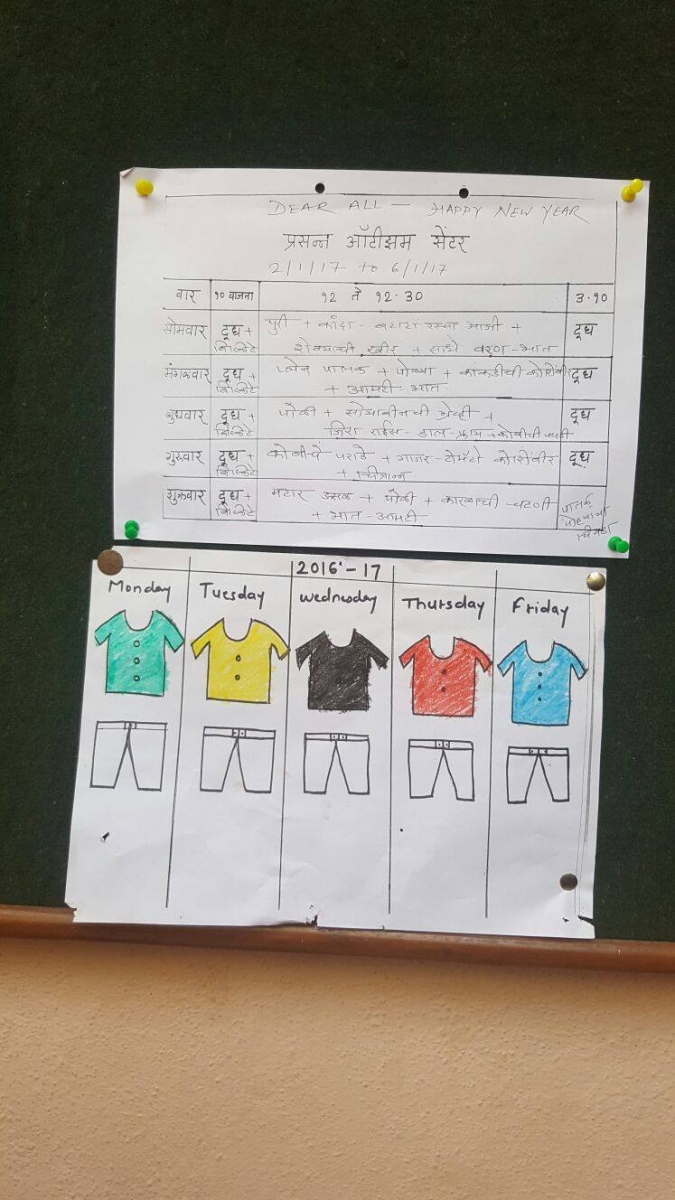 DEAR ALL - HAPPY NEW YEAR
प्रसन्न ऑटीझम सेंटर
2/1/17 to 6/1/17
वार १० वाजता १२ ते १२.३० ३.१०
सोमवार दूध + बिस्किटे पुरी + कांदा - बटाटा रस्सा भाजी + दूध
शेवयाची खीर + साधे वरण - भात
मंगळवार दूध + बिस्किटे पालक + पोळ्या + काकडीची कोशिंबीर दूध
+ आमटी - भात
बुधवार दूध + बिस्किटे पोळी + सोयाबीनची ग्रेव्ही + दूध
जिरा राईस - डाल - फ्राय + कोबीची
गुरुवार दूध + बिस्किटे कोबीचे पराठे + गाजर - टोमॅटो कोशिंबीर दूध
+ चित्रान्न
शुक्रवार दूध + बिस्किटे मटार उसळ + पोळी + कारळाची - चटणी पातळ
+ भात - आमटी पोह्याचा
चिवडा
2016 - 17
Monday Tuesday Wednesday Thursday Friday